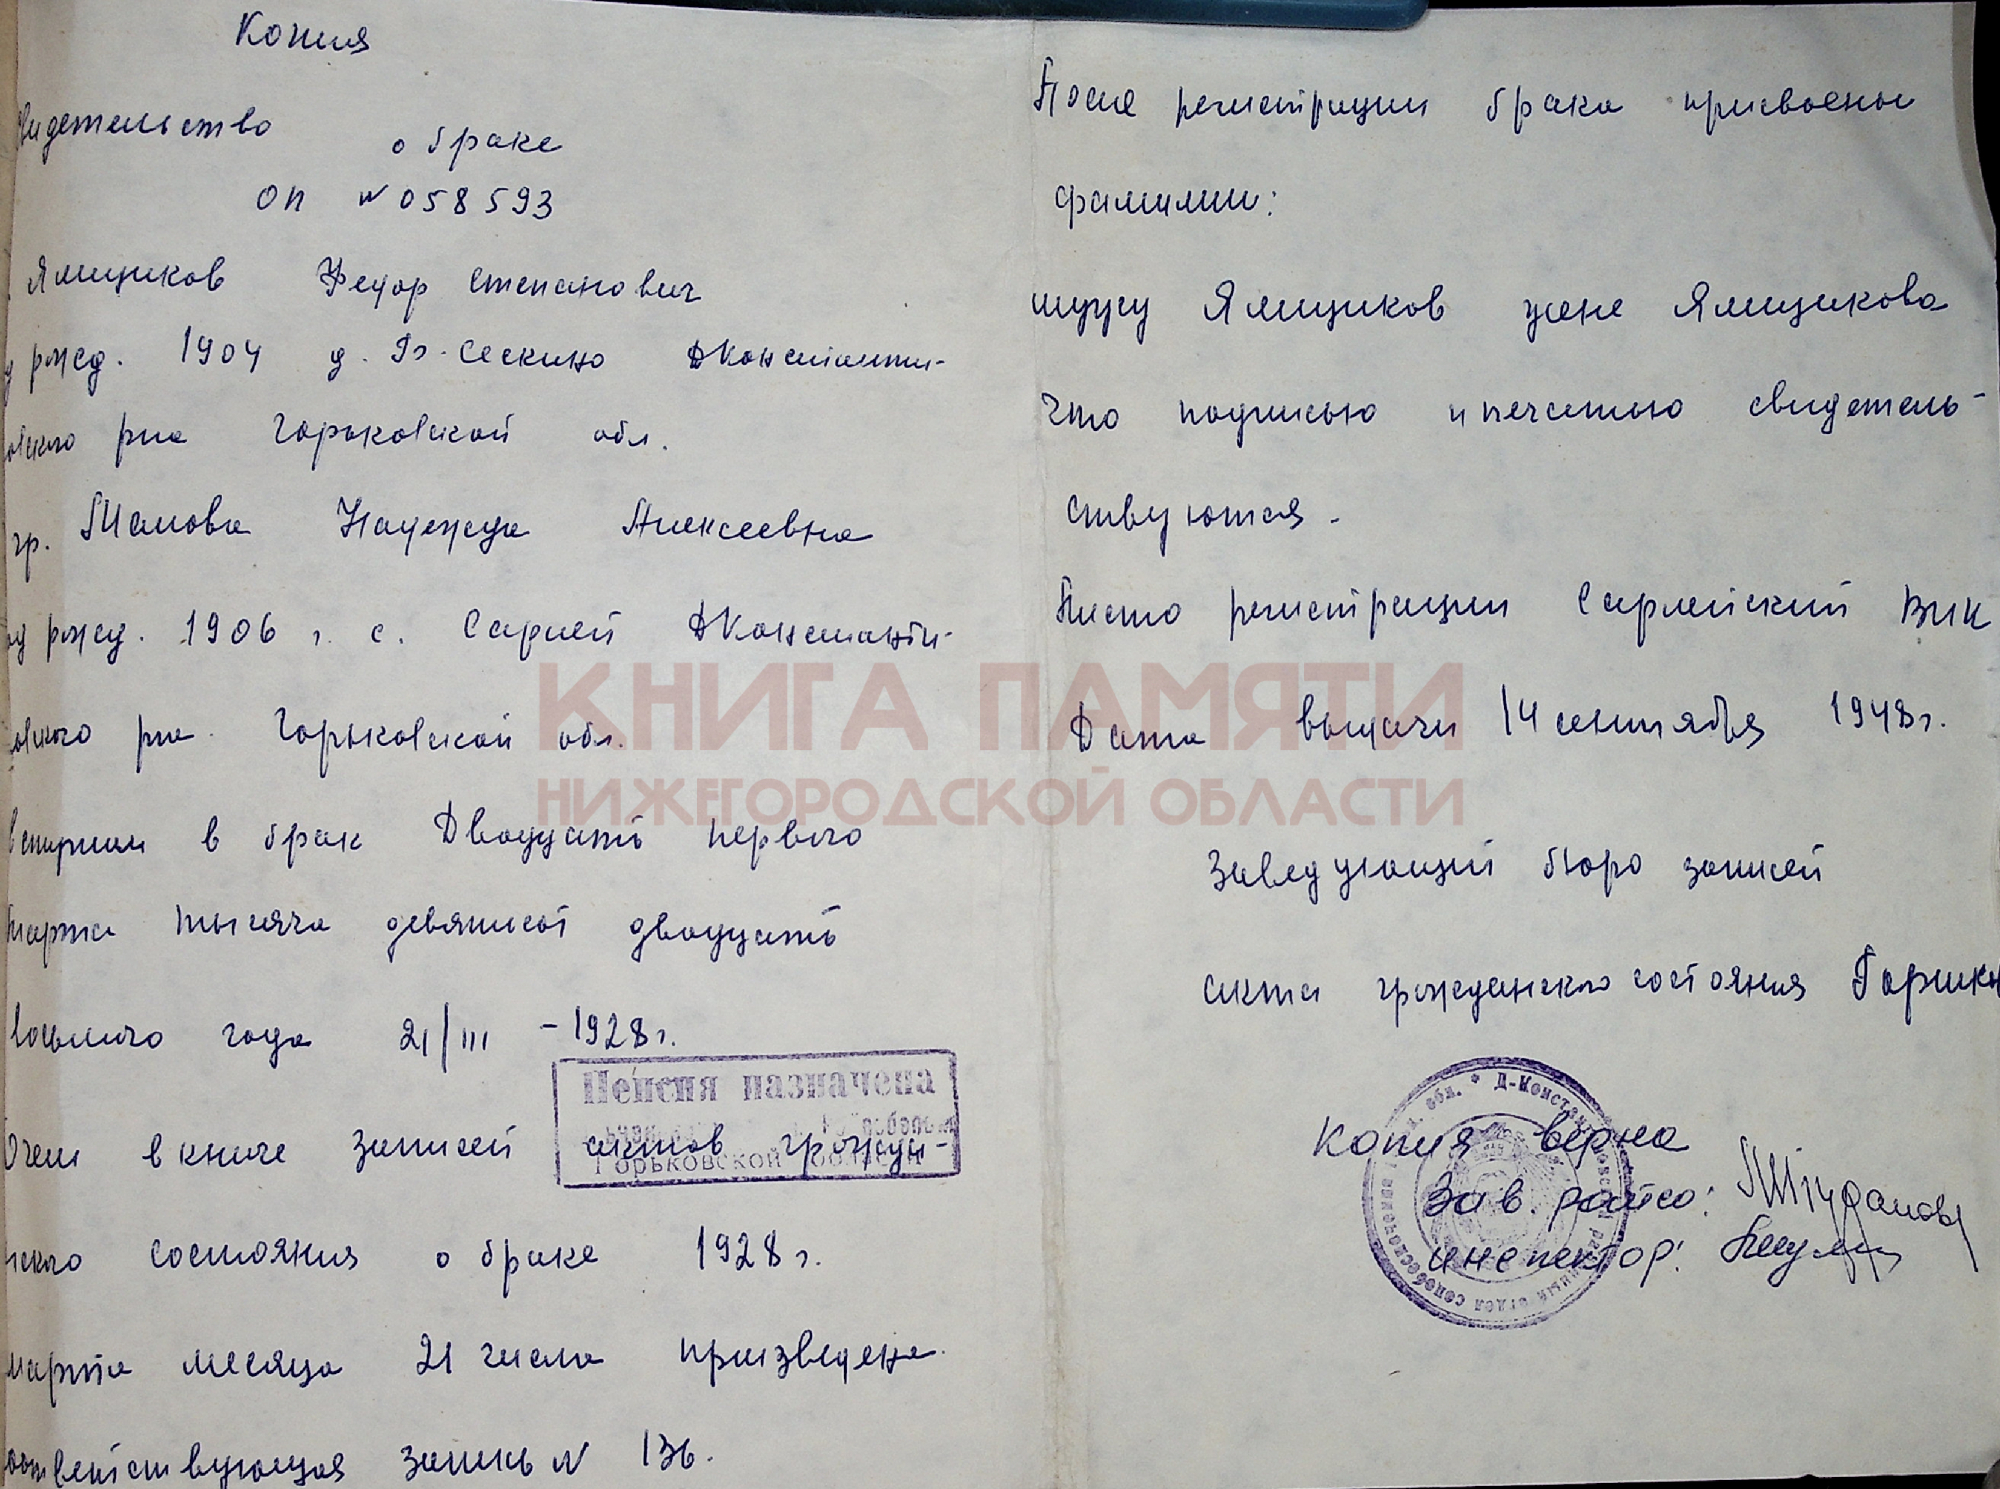 Копия
видетельство о браке
ОП N 058593
Ямщиков Федор Степанович
рожд. 1904 д. Б-Сескино ДКонстанти-
овского р-на Горьковской обл.
гр. Шамова Надежда Алексеевна
рожд. 1906 г. с. Сарлей ДКонстанти-
овского р-на Горьковской обл.
вступили в брак Двадцать первого
марта тысяча девятьсот двадцать
восьмого года 21/III - 1928 г.
О чем в книге записей актов граждан-
нского состояния о браке 1928 г.
марта месяца 21 числа произведена
соответствующая запись N 136.
Пенсия назначена
Горьковской области
После регистрации брака присвоены
фамилии:
мужу Ямщиков жене Ямщикова
Что подписью и печатью свидетель-
ствуются.
Место регистрации Сарлейский ВИК
Дата выдачи 14 сентября 1948 г.
Заведующий бюро записей
акта гражданского состояния
Копия верна
Зав. райсо:
инспектор:
обл. * Д-Констан
отдел
КНИГА ПАМЯТИ
НИЖЕГОРОДСКОЙ ОБЛАСТИ